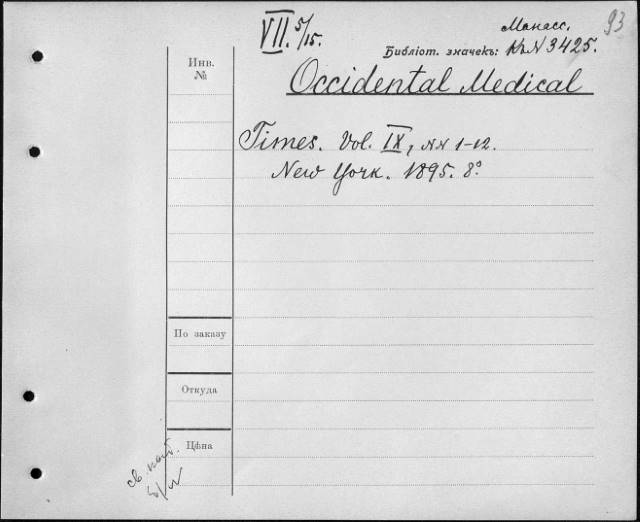 93
VII. 5/15.
Манасс.
Библіот. значекъ: КъN 3425.
Инв.
№
Occidental Medical
Times. Vol. IX, NN 1-12.
New York. 1895. 8°
По заказу
Откуда
Цѣна
св.